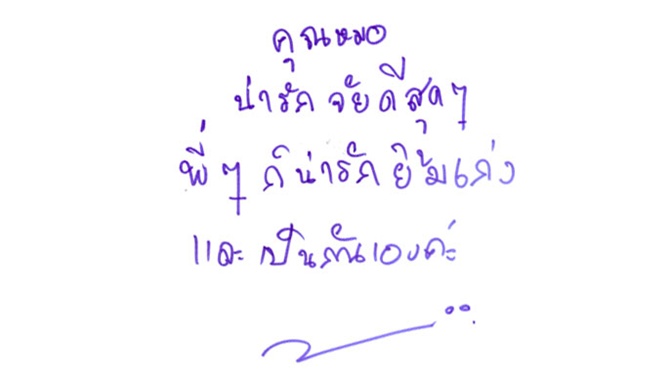 คุณหมอ
น่ารัก จัยดีสุดๆ
พี่ๆ ก็น่ารัก ยิ้มเก่ง
และ เป็นกันเองค่ะ